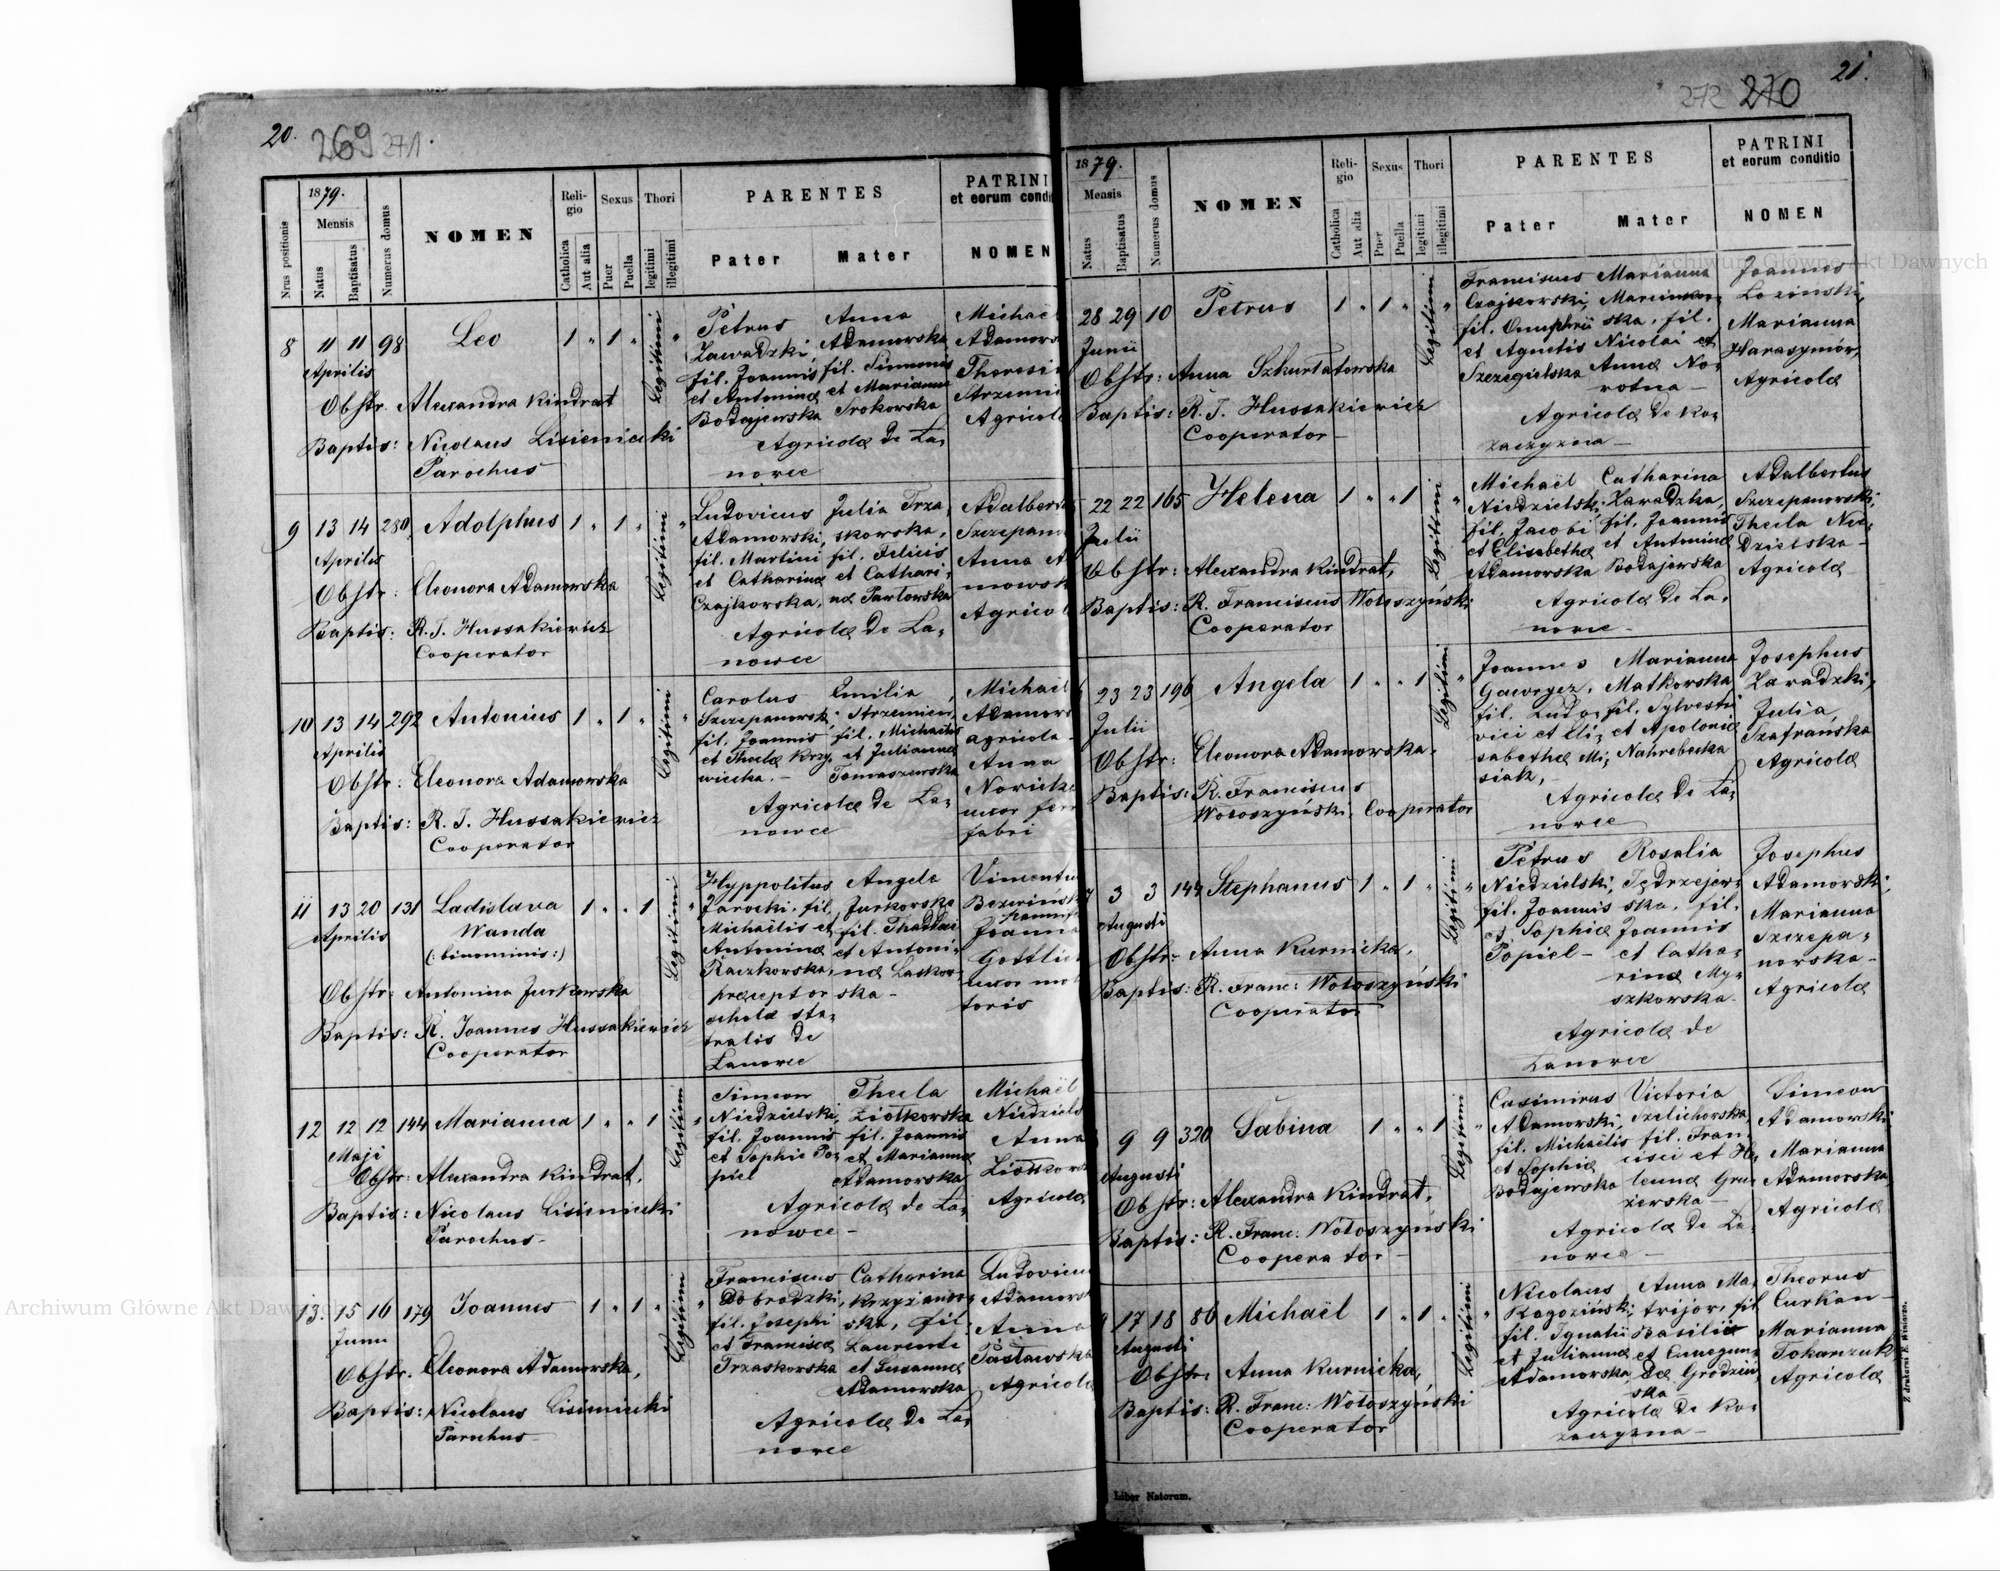 20. 269 271.
1879.
Mensis
Nrus positionis
Natus
Baptisatus
Numerus domus
NOMEN
Religio
Catholica
Aut alia
Sexus
Puer
Puella
Thori
legitimi
illegitimi
PARENTES
Pater
Mater
PATRINI
et eorum condi
NOMEN
8 11 11 98 Leo 1 " 1 "
Aprilis
Obstr. Alexandra Kindrat
Baptis: Nicolaus Lisieniecki
Parochus
Legitimi
Petrus
Zawadzki,
fil. Joannis
et Antoninæ
Bodajewska
Anna
Adamowska
fil. Simeonis
et Marianna
Srokowska
Agricolæ de La-
nowce
Michael
Adamows
Theresia
Strzemie
Agricol
9 13 14 280 Adolphus 1 " 1 "
Aprilis
Obstr: Eleonora Adamowska
Baptis: R. J. Hussakiewicz
Cooperator
Legitimi
Ludovicus
Adamowski,
fil. Martini
et Catharinæ
Czajkowska,
Julia Trza-
skowska,
fil. Felicis
et Cathari-
næ Pawlowska
Agricolæ de La-
nowce
Adalber
Szczepano
Anna A
mowsk
Agrico
10 13 14 292 Antonius 1 " 1 "
Aprilis
Obstr: Eleonora Adamowska
Baptis: R. J. Hussakiewicz
Cooperator
Legitimi
Carolus
Szczepanowski,
fil. Joannis
et Theclæ Krzy-
wiecka.
Emilia
fil. Michaelis
et Juliannæ
Tomaszewska
Agricolæ de La-
nowce
Michael
Adamows
agricola
Anna
Novicka
uxor ferr
fabri
11 13 20 131 Ladislava 1 " " 1
Aprilis Wanda
(: binominis :)
Obstr: Antonina Jurkowska
Baptis: R. Joannes Hussakiewicz
Cooperator
Legitimi
Hyppolitus
Jarocki, fil.
Michaelis et
Antoninæ
Raczkowska,
præceptor
scholæ sta-
tralis de
Lanowce
Angela
Jurkowska
fil. Thadæi
et Antoni-
næ Laskow-
ska
Joanna
Gottlieb
uxor mo
toris
12 12 12 144 Marianna 1 " " 1
Maji
Obstr: Alexandra Kindrat,
Baptis: Nicolaus Lisieniecki
Parochus
Legitimi
Simeon
Niedzielski,
fil. Joannis
et Sophie Po-
piel
Thecla
Ziółkowska
fil. Joannis
et Mariannæ
Adamowska
Agricolæ de La-
nowce
Michaël
Niedziels
Anna
Ziółkows
Agricolæ
13. 15 16 179 Joannes 1 " 1 "
Junii
Obstr. Eleonora Adamowska,
Baptis: Nicolaus Lisieniecki
Parochus
Legitimi
Franciscus
Dobrodzki,
fil. Josephi
et Franciscæ
Trzaskowska
Catharina
Krzyzanow-
ska, fil.
Laurenti
et Susannæ
Adamowska
Agricolæ de La-
nowce
Ludovicus
Adamowsk
Anna
Pasławska
Agricolæ
272 270 21.
1879.
Mensis
Natus
Baptisatus
Numerus domus
NOMEN
Religio
Catholica
Aut alia
Sexus
Puer
Puella
Thori
legitimi
illegitimi
PARENTES
Pater
Mater
PATRINI
et eorum conditio
NOMEN
28 29 10 Petrus 1 " 1 "
Junii
Obstr: Anna Szkurłatowska
Baptis: R. J. Hussakiewicz
Cooperator
Legitimi
Franciscus
Czajkowski,
fil. Onuphrii
et Agnetis
Szczegielska
Marianna
Marcinkow-
ska, fil.
Nicolai et
Annæ No-
rotna
Agricolæ de Ko-
zaczyzna
Joannes
Lozinski,
Marianna
Harasymów,
Agricolæ
22 22 165 Helena 1 " " 1
Julii
Obstr: Alexandra Kindrat,
Baptis: R. Franciscus Wołoszyński
Cooperator
Legitimi
Michaël
Niedzielski,
fil. Jacobi
et Elisabethæ
Adamowska
Catharina
Zawadzka,
fil. Joannis
et Antoninæ
Bodajewska
Agricolæ de La-
nowce
Adalbertus
Szczepanowski,
Thecla Nie-
dzielska
Agricolæ
23 23 196 Angela 1 " " 1
Julii
Obstr: Eleonora Adamowska.
Baptis: R. Franciscus
Wołoszyński, Cooperator
Legitimi
Joannes
Gawryez,
fil. Ludo-
vici et Eli-
sabethæ Mi-
siak,
Marianna
Matkowska
fil. Sylvestri
et Apoloniæ
Nahrebecka
Agricolæ de La-
nowce
Josephus
Zawadzki,
Julia
Szafrańska
Agricolæ
3 3 144 Stephanus 1 " 1 "
Augusti
Obstr: Anna Kurnicka,
Baptis: R. Franc: Wołoszyński
Cooperator
Legitimi
Petrus
Niedzielski,
fil. Joannis
et Sophiæ
Popiel
Rosalia
Jędrzejew-
ska, fil.
Joannis
et Catha-
rinæ My-
szkowska.
Agricolæ de
Lanowce
Josephus
Adamowski,
Marianna
Szczepa-
nowska
Agricolæ
9 9 320 Sabina 1 " " 1
Augusti
Obstr: Alexandra Kindrat,
Baptis: R. Franc: Wołoszyński
Cooperator
Legitimi
Casimirus
Adamowski,
fil. Michaëlis
et Sophiæ
Bodajewska
Victoria
Szelichowska,
fil. Fran-
cisci et He-
lenæ Gru-
żewska
Agricolæ de La-
nowce
Simeon
Adamowski
Marianna
Adamowska,
Agricolæ
17 18 86 Michaël 1 " 1 "
Augusti
Obstr: Anna Kurnicka,
Baptis: R. Franc: Wołoszyński
Cooperator
Legitimi
Nicolaus
Rogoziński,
fil. Ignatii
et Juliannæ
Adamowska
Anna Ma-
trijów, fil.
Basilii
et Cunegun-
dæ Grodziń-
ska
Agricolæ de Ko-
zaczyzna
Curkan
Marianna
Tokarczuk
Agricolæ
Liber Natorum.
Z drukarni E. Winiarza.
Archiwum Główne Akt Dawnych
Archiwum Główne Akt Dawnych